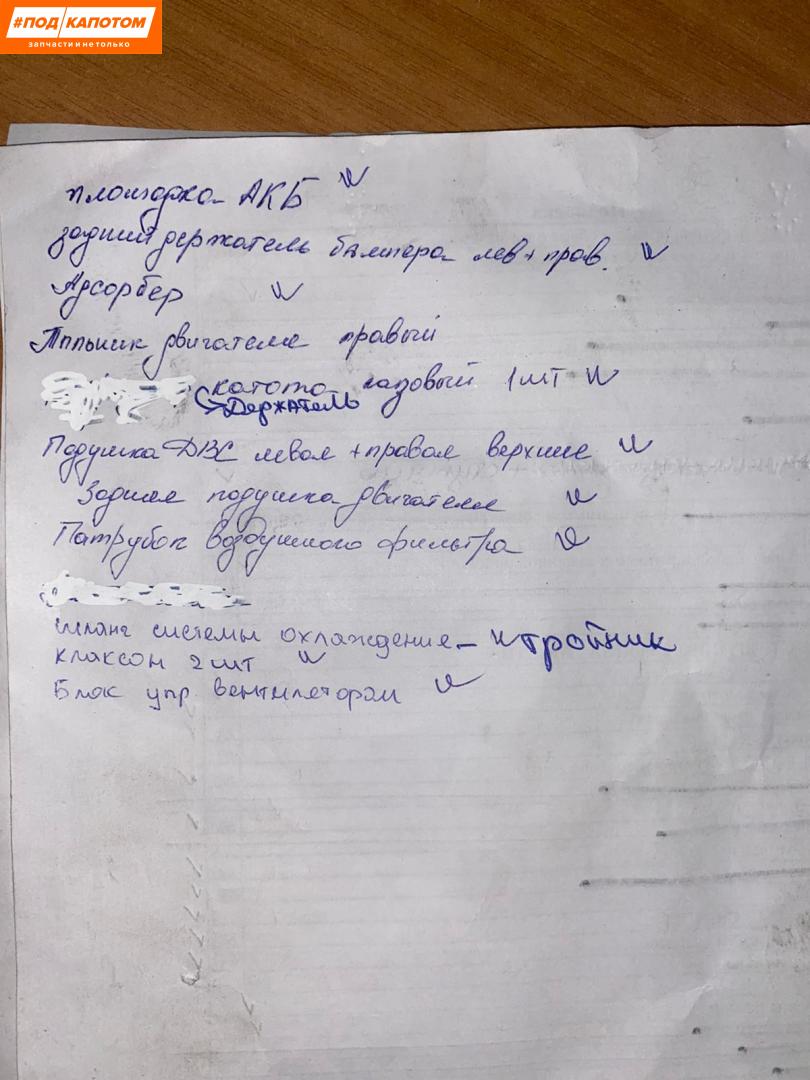 #ПОД КАПОТОМ
запчасти и не только
площадка АКБ
задний держатель бампера лев + прав.
Адсорбер
двигателя правый
капота газовый 1 шт
Держатель
Подушка ДВС левая + правая верхние
Задняя подушка двигателя
Патрубок воздушного фильтра
шланг системы охлаждение - тройник
клаксон 2 шт
Блок упр вентилятором